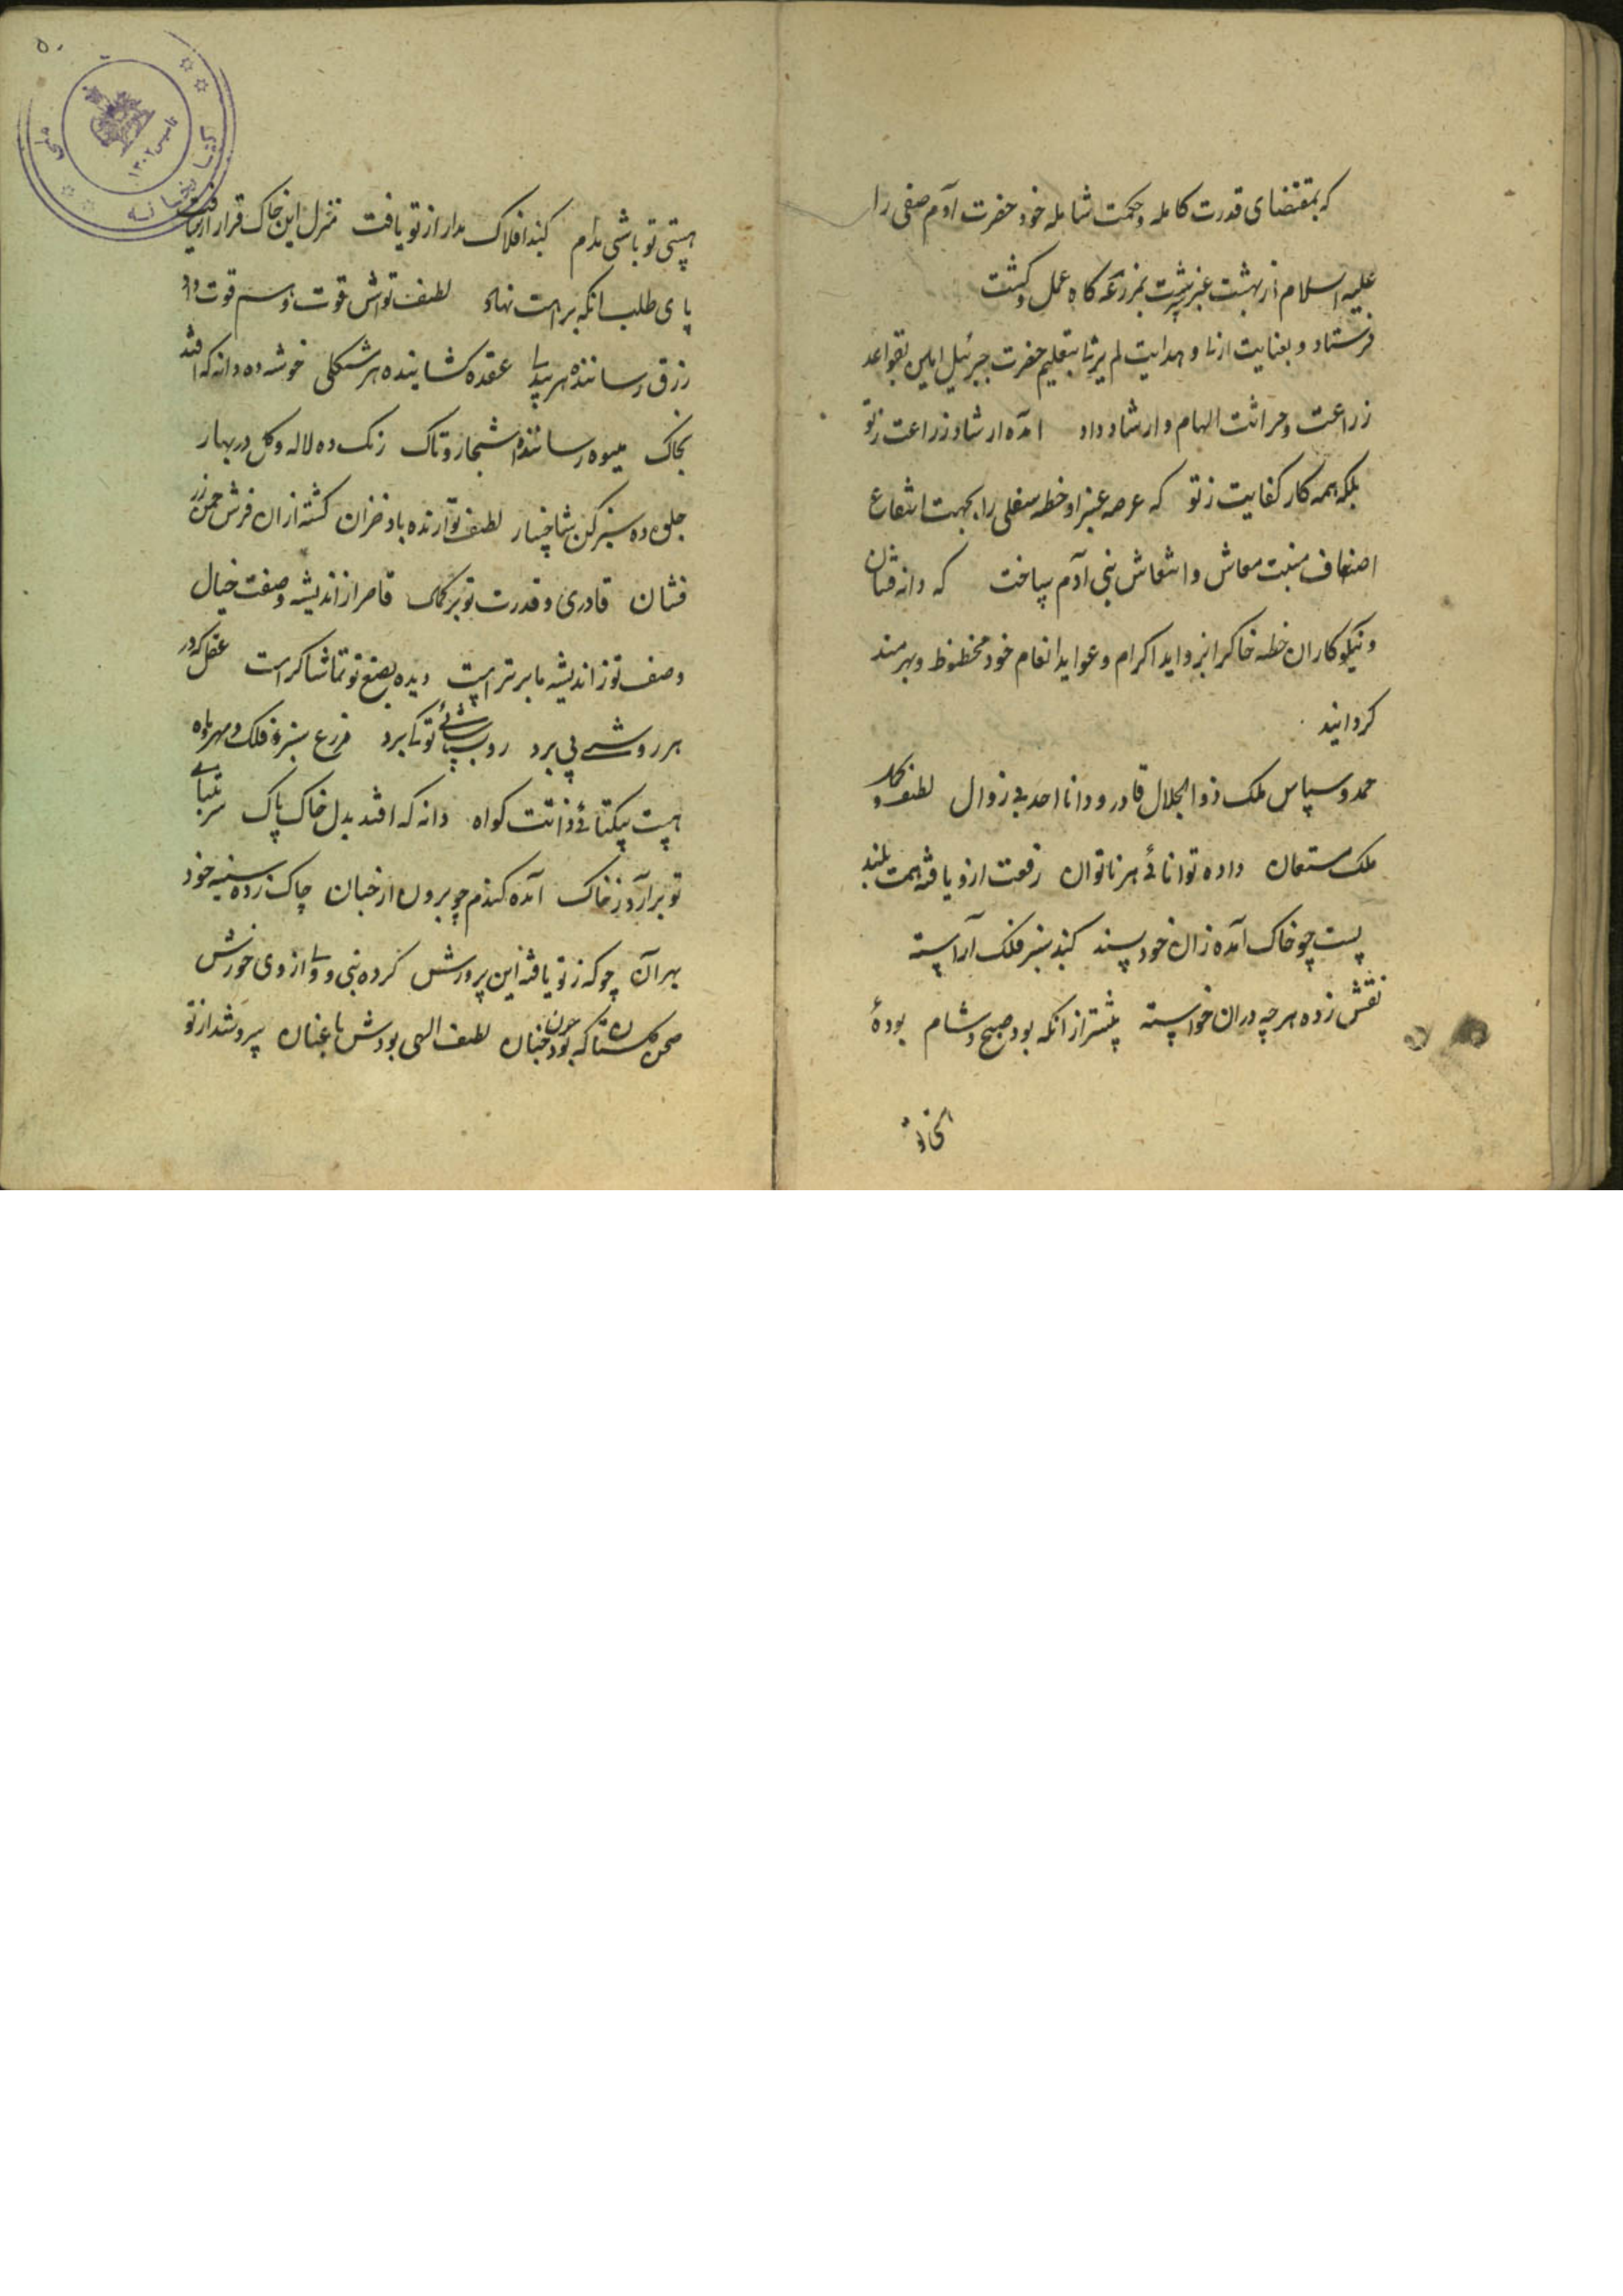 که بمقتضای قدرت کامله و حکمت شامله خود حضرت آدم صفی را
علیه السلام از بهشت عنبر سرشت بمزرعه کاه عمل و کشت
فرستاد و بعنایت ازلی و هدایت لم یزلی بتعلیم حضرت جبرئیل امین بقواعد
زراعت و حراثت الهام و ارشاد داد امده ارشاد زراعت زتو
بلکه همه کار کفایت زتو که عرصه غبرا و خطه سفلی را بجهت انتفاع
اصناف منبت معاش و انتعاش بنی آدم ساخت که دانه فشان
و نیکوکاران خطه خاکرا بزواید اکرام و عواید انعام خود محظوظ و بهرمند
کردانید
حمد و سپاس ملک ذوالجلال قادر و دانا احد بی زوال لطف
ملک مستعان داده توانائی هر ناتوان رفعت ازو یافته همت بلند
پست چو خاک آمده زان خود پسند کنبد سبز فلک آراسته
نقش زده هر چه دران خواسته پیشتر از انکه بود صبح و شام بودۀ
هستی تو باشی مدام کنبد افلاک مدار از تو یافت منزل این خاک قرار از تو یافت
پای طلب انکه براهت نهاد لطف تواش قوت و هم قوت داد
رزق رساننده هر عقده کشاینده هر مشکلی خوشه ده دانه که افتد
بخاک میوه رساننده اشجار و تاک رنک ده لاله و کل در بهار
جلوه ده سبز کن شاخسار لطف تو ارنده باد خزان کشته ازان فرش چمن زر
فشان قادری و قدرت تو بر کمال قاصر از اندیشه وصفت خیال
وصف تو ز اندیشه ما برتر است دیده بصنع تو تماشاکر است عقل که در
هر روشی پی برد ره بشناسائی تو کی برد مزرع سبز فلک و مهر و ماه
هست بیکتائی ذاتت کواه دانه که افتد بدل خاک پاک
تو برآرد ز خاک آمده کندم چو برون از جنان چاک زده سینه خود
بهر آن چونکه ز تو یافته این پرورش کرده نبی و ولی از وی خورش
صحن کلستان که بود چون جنان لطف الهی بودش باغبان سرو شد از تو